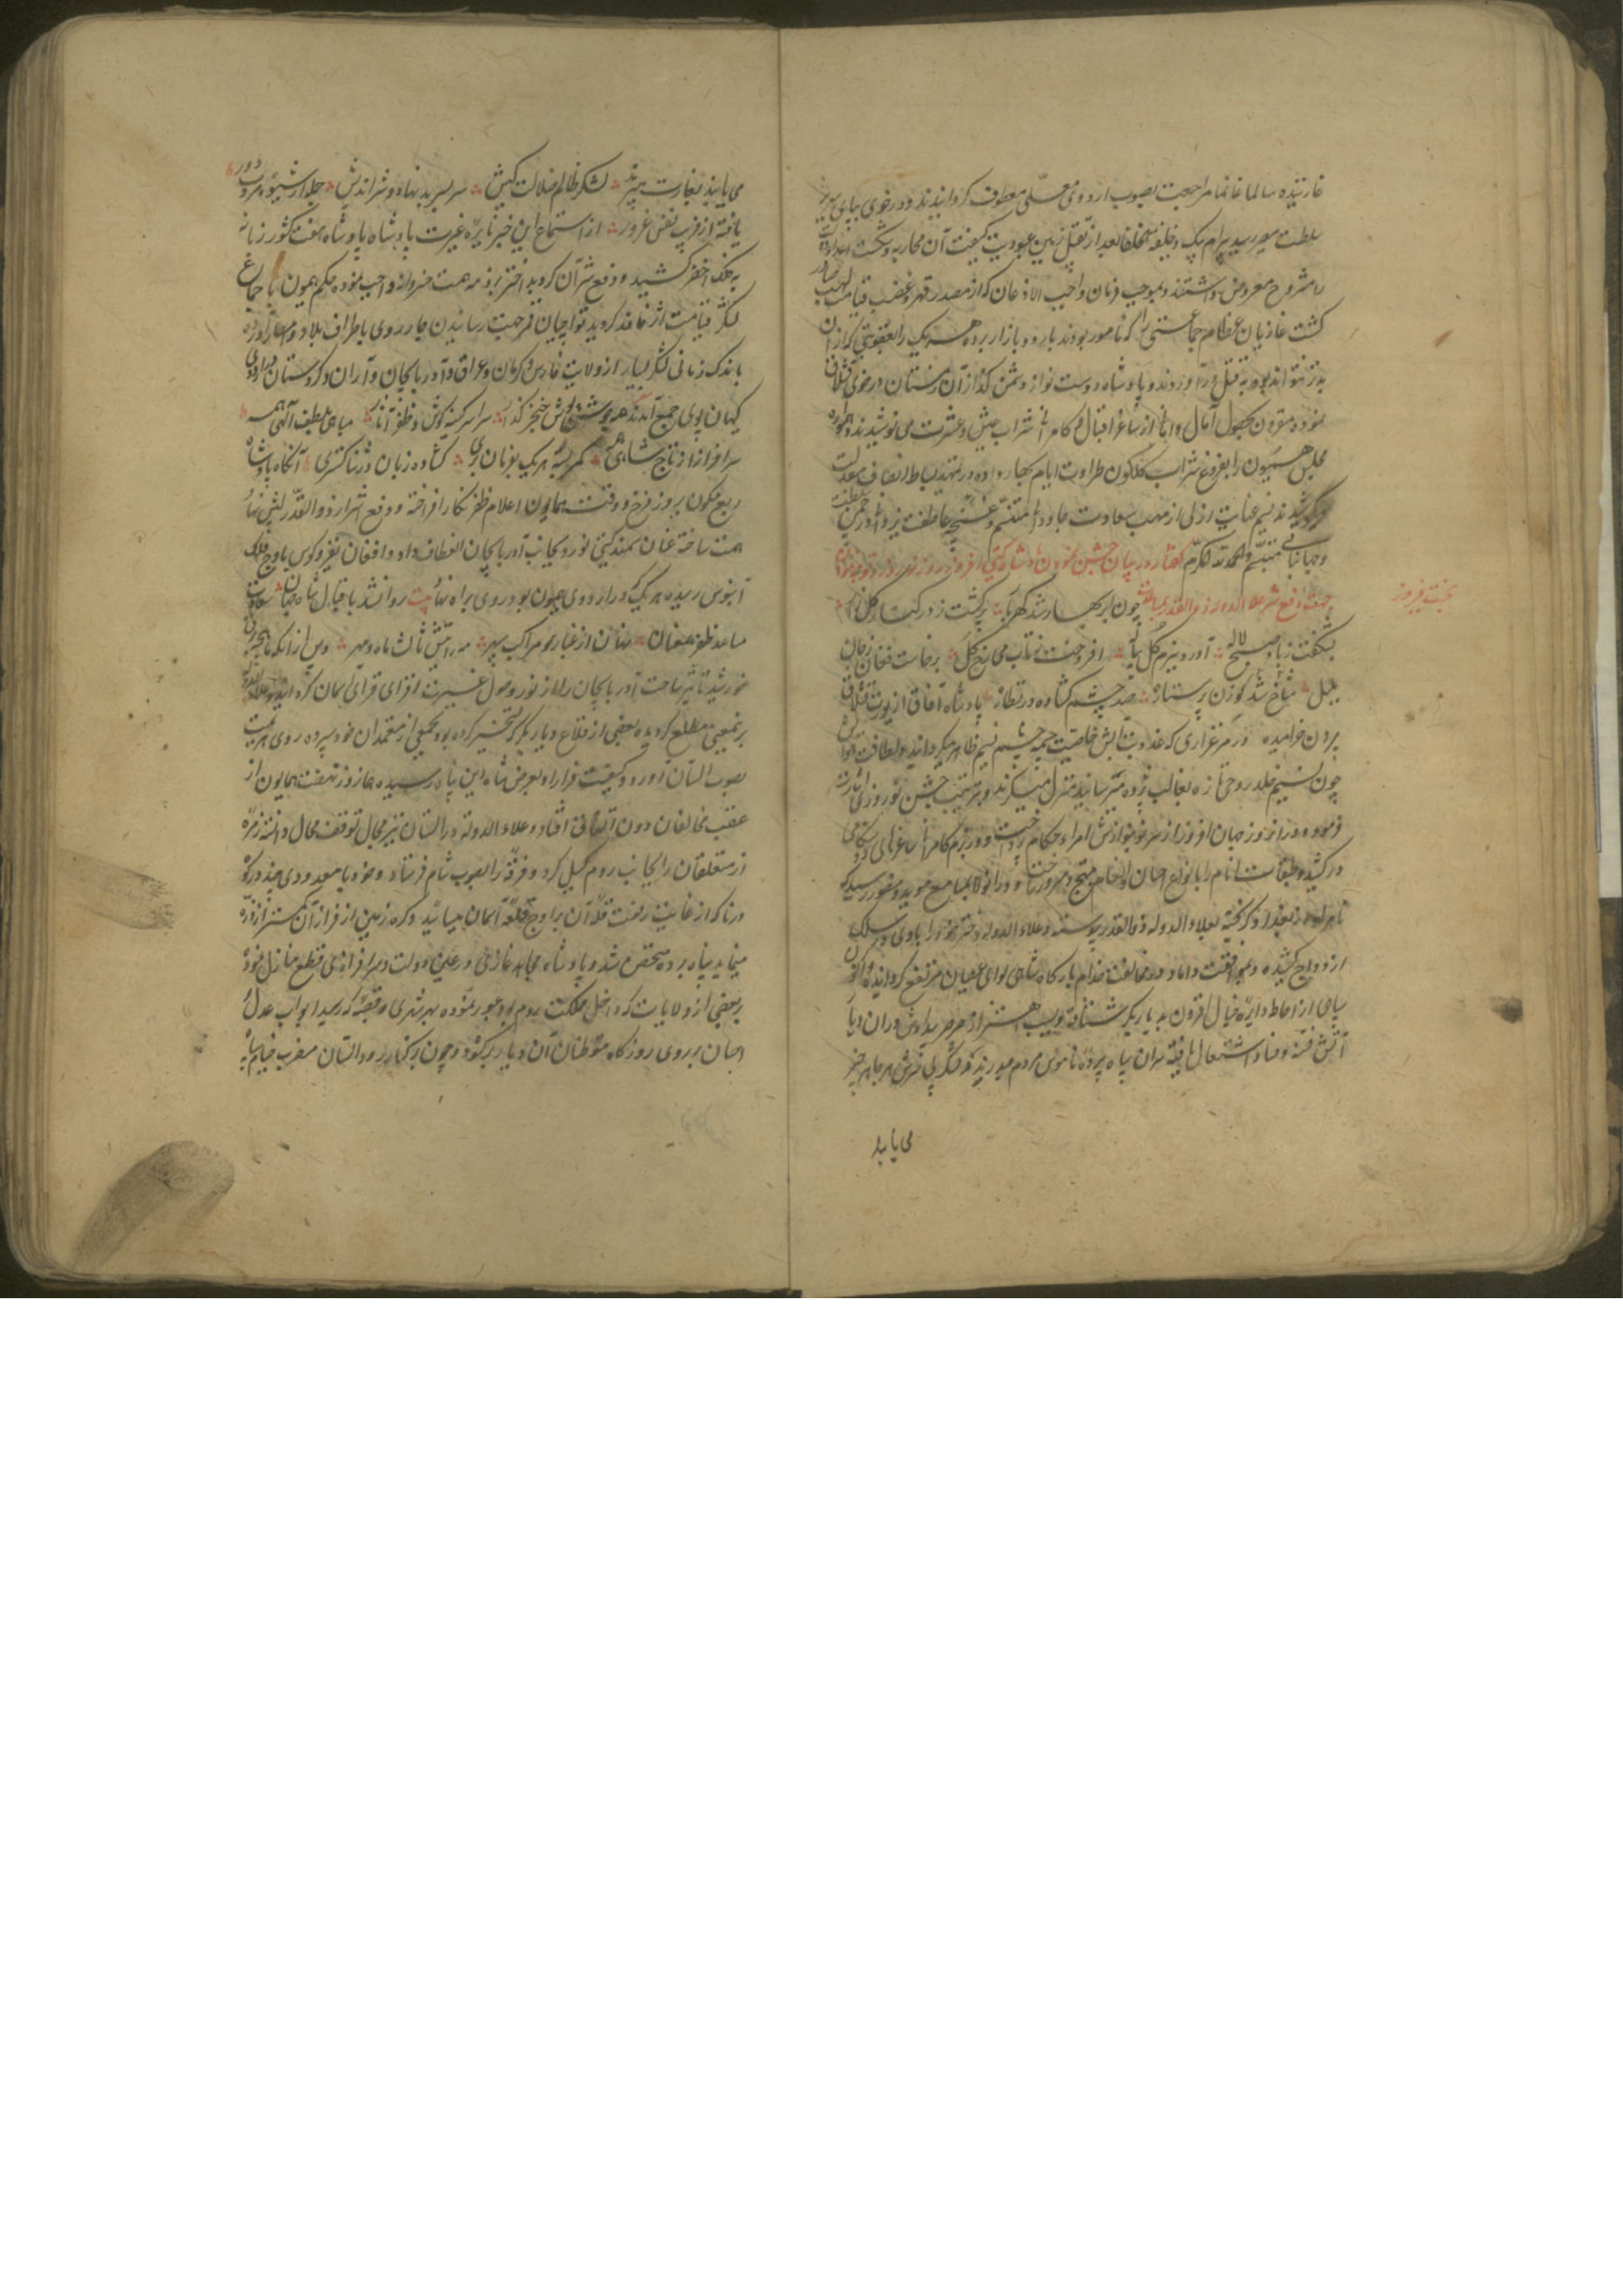 غارتیده سالما غانما مراجعت بصوب اردوی معلی معطوف گردانیدند و در خوی بپای سریر
سلطنت مصیر رسید بیرام بیک و خلیفه الخلفا بعد از تقبیل زمین عبودیت کیفیت آن محاربه و شکست
را مشروح معروض داشتند و بموجب فرمان واجب الاذعان که از مصدر قهر و غضب قیامت لهب صادر
کشت غازیان عظام جماعتی را که نامور بودند باردو بازار برده هر یک را بعقوبتی که از آن
بدتر نتواند بود بقتل در آوردند و پادشاه دوست نواز دشمن گداز آن زمستان در خوی قشلاق
نموده مقرون بحصول آمال و امانی از ساغر اقبال و کامرانی شراب عیش و عشرت می نوشیدند و همواره
مجلس همیون را بفروغ شراب گلگون طراوت ایام بهار داده در تمهید بساط انصاف و معدلت
میکوشیدند نسیم عنایت ازلی از مهب سعادت جاودانی متنسم و غنچه عاطفت یزدانی در چمن سلطنت
و جهانبانی متبسم والحمد لله الکرم گفتار در بیان جشن نمودن پادشاه گیتی افروز در روز نوروز و توجه
بجهت دفع شر علاء الدوله ذوالقدر چون ابر بهار شد گهربار برگشت ز در کنار گلزار
بشکفت ز باد صبح لاله آورد ببزم گل پیاله افروخت ز تاب می رخ گل برخاست فغان ز جان
بلبل شاخ شکوفه زن پرستاره صد چشم گشاده در نظاره پادشاه آفاق از یورت قشلاق
بیرون خرامیده در مرغزاری که عذوبت آبش خاصیت چشمه تسنیم ظاهر میگردانید و لطافت هوایش
چون نسیم خلد روحی تازه بقالب پژمرده میرسانید منزل گزیدند و بترتیب جشن نوروزی اشارت
فرمود و در آن روز جهان افروز از سر نو بنوازش امراء و حکام پرداخت و در بزم کامرانی ساغرهای دوستکامی
در کشید و طبقات انام را بانواع احسان و انعام مبتهج و مسرور ساخت و در آن ولا بمسامع مؤید و منصور رسید که
از بغداد گریخته بعلاء الدوله ذوالقدر پیوسته و علاء الدوله دختر خود را با وی در سلک
ازدواج کشیده و بموافقت داماد در مخالفت خدام بارگاه شاهی لوای عصیان مرتفع گردانیده و اکنون
سپاهی از احاطه دایره خیال افزون بدیار بکر شتافته و بسبب اهتزاز صرصر بیداد ایشان در آن دیار
آتش فتنه و فساد اشتعال یافته سران سپاه پرده ناموس مردم میدرند و لشکریان شر هر جا هر چیز
می یابد
بخت فیروز
می یابند بغارت میبرند لشکر ظالم ضلالت کیش سر بسر بدنهاد و شر اندیش جمله از شیوه مروت دور
یافته از فریب نفس غرور از استماع این خبر نایره غیرت پادشاه هفت کشور زبانه
به فلک اخضر کشید و دفع شر آن گروه بد اختر بر ذمه همت خسروانه واجب نموده حکم همیون باجتماع
لشکر قیامت اثر نافذ گردید تواچیان قمر جهت رسانیدن جار روی باطراف بلاد و امصار آورده
باندک زمانی لشکر بسیار از ولایت فارس و کرمان و عراق و آذربایجان و آران و کردستان در اردوی
کیهان پوی جمع آمدند همه جوشن پوش خنجر گذار سراسر کینه کوش و ظفر آثار مباهی بلطف آلهی همه
سرافراز از تاج شاهی همه کمر بسته هر یک بفرمان بری گشاده زبان در ثنا گستری آنگاه پادشاه
ربع مسکون بروز فرخ و وقت همایون اعلام ظفر نگار افراخته و دفع اشرار ذوالقدر را پیش نهاد
همت ساخته عنان سمند گیتی نورد بجانب آذربایجان انعطاف داد و افغان نفیر و کوس باوج فلک
آبنوس رسیده هر یک در اردوی همیون بود روی براه نهاد بیت روانشد باقبال شاه جهان سعادت
مساعد ظفر همعنان نهان از غبار مراکب سپهر سه رایتش ثالث ماه و مهر و پس از آنکه
خورشید تاثیر ساحت آذربایجان را از نور وصول غیرت افزای قرای آسمان گردانید و علاء الدوله
برینمعنی مطلع گردیده بعضی از قلاع دیار بکر که تسخیر کرده بود بجمعی از معتمدان خود سپرده روی هزیمت
بصوب البستان آورد و کیفیت فرار او بعرض شاه دین پناه رسیده هم از روز نهضت همایون از
عقب مخالفان دون اتفاق افتاد و علاء الدوله در البستان نیز مجال توقف محال دانسته زمره
از متعلقان را بجانب روم گسیل کرد و فرقه را بصوب شام فرستاد و خود با معدودی چند در کوه
درنا که از غایت رفعت قله آن بر اوج قلعه آسمان میساید و کره زمین از فراز آن کمتر از ذره
مینماید پناه برده متحصن شد و پادشاه مجاهد غازی در عین دولت و سرافرازی قطع منازل نموده
بر بعضی از ولایات که داخل مملکت روم بود عبور نموده بهر شهری و قصبه که رسید ابواب عدل و
احسان بر روی روزگار متوطنان آن دیار برگشود و چون بر کنار رود البستان مضرب خیام سپاه